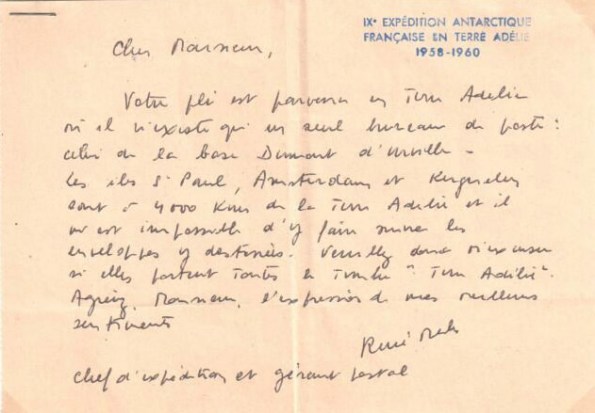 IXᵉ EXPÉDITION ANTARCTIQUE
FRANÇAISE EN TERRE ADÉLIE
1958-1960
Cher Monsieur,
Votre pli est parvenu en Terre Adélie
où il n'existe qu'un seul bureau de poste :
celui de la base Dumont d'Urville -
Les îles St Paul, Amsterdam et Kerguelen
sont à 4000 Kms de la Terre Adélie et il
m'est impossible d'y faire suivre les
enveloppes y destinées. Veuillez donc m'excuser
si elles portent toutes le timbre "Terre Adélie".
Agréez, Monsieur, l'expression de mes meilleurs
sentiments
René
Chef d'expédition et gérant postal